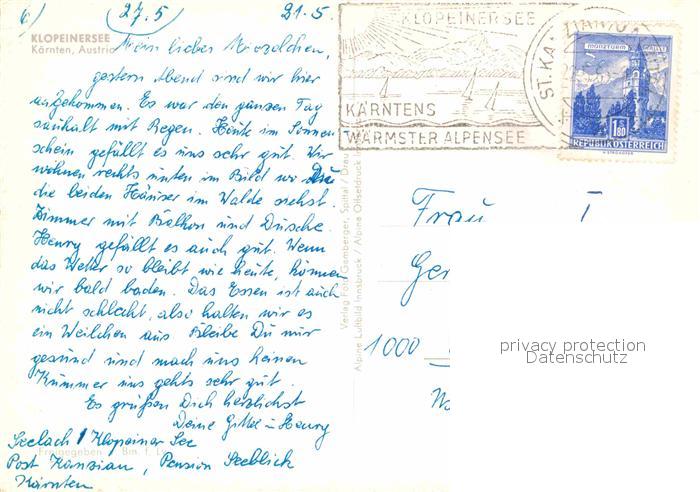 6) (27.5) 21.5.
KLOPEINERSEE
Kärnten, Austria
Mein liebes
gestern Abend sind wir hier
angekommen. Es war den ganzen Tag
saukalt mit Regen. Heute im Sonnen
schein gefällt es uns sehr gut. Wir
wohnen rechts unten im Bild wo Du
die beiden Häuser im Walde siehst.
Zimmer mit Balkon und Dusche.
Henry gefällt es auch gut. Wenn
das Wetter so bleibt wie heute, können
wir bald baden. Das Essen ist auch
nicht schlecht, also halten wir es
ein Weilchen aus. Bleibe Du nur
gesund und mach uns keinen
Kummer uns gehts sehr gut.
Es grüßen Dich herzlichst
Deine Gittel u Henry
Seelach / Klopeiner See
Freigegeben
Post Kanzian, Pension Seeblick
Kärnten
Verlag Foto Gamberger, Spittal / Drau
Alpine Luftbild Innsbruck / Alpine Offsetdruck
KLOPEINERSEE
KÄRNTENS
WÄRMSTER ALPENSEE
ST. KANZIAN
MÜNZTURM HALL
1.80
REPUBLIK ÖSTERREICH
Frau I
Ger
1000
privacy protection
Datenschutz